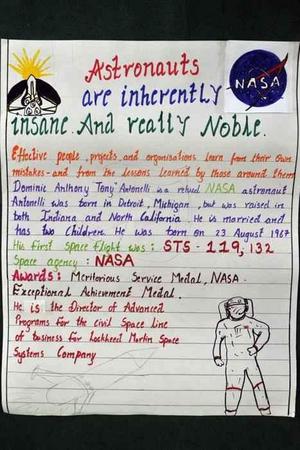 Astronauts
are inherently
NASA
insane. And really Noble.
Effective people, projects, and organisations learn from their own
mistakes - and from the lessons learned by those around them
Dominic Anthony Tony Antonelli was a retired NASA astronaut
Antonelli was born in Detroit, Michigan, but was raised in
both Indiana and North California. He is married and
has two children. He was born on 23 August 1967
His first Space flight was: STS - 119, 132
Space agency: NASA
Awards: Meritorious Service Medal, NASA -
Exceptional Achievement Medal.
He is the Director of Advanced
Programs for the civil Space line
of business for Lockheed Martin Space
Systems Company